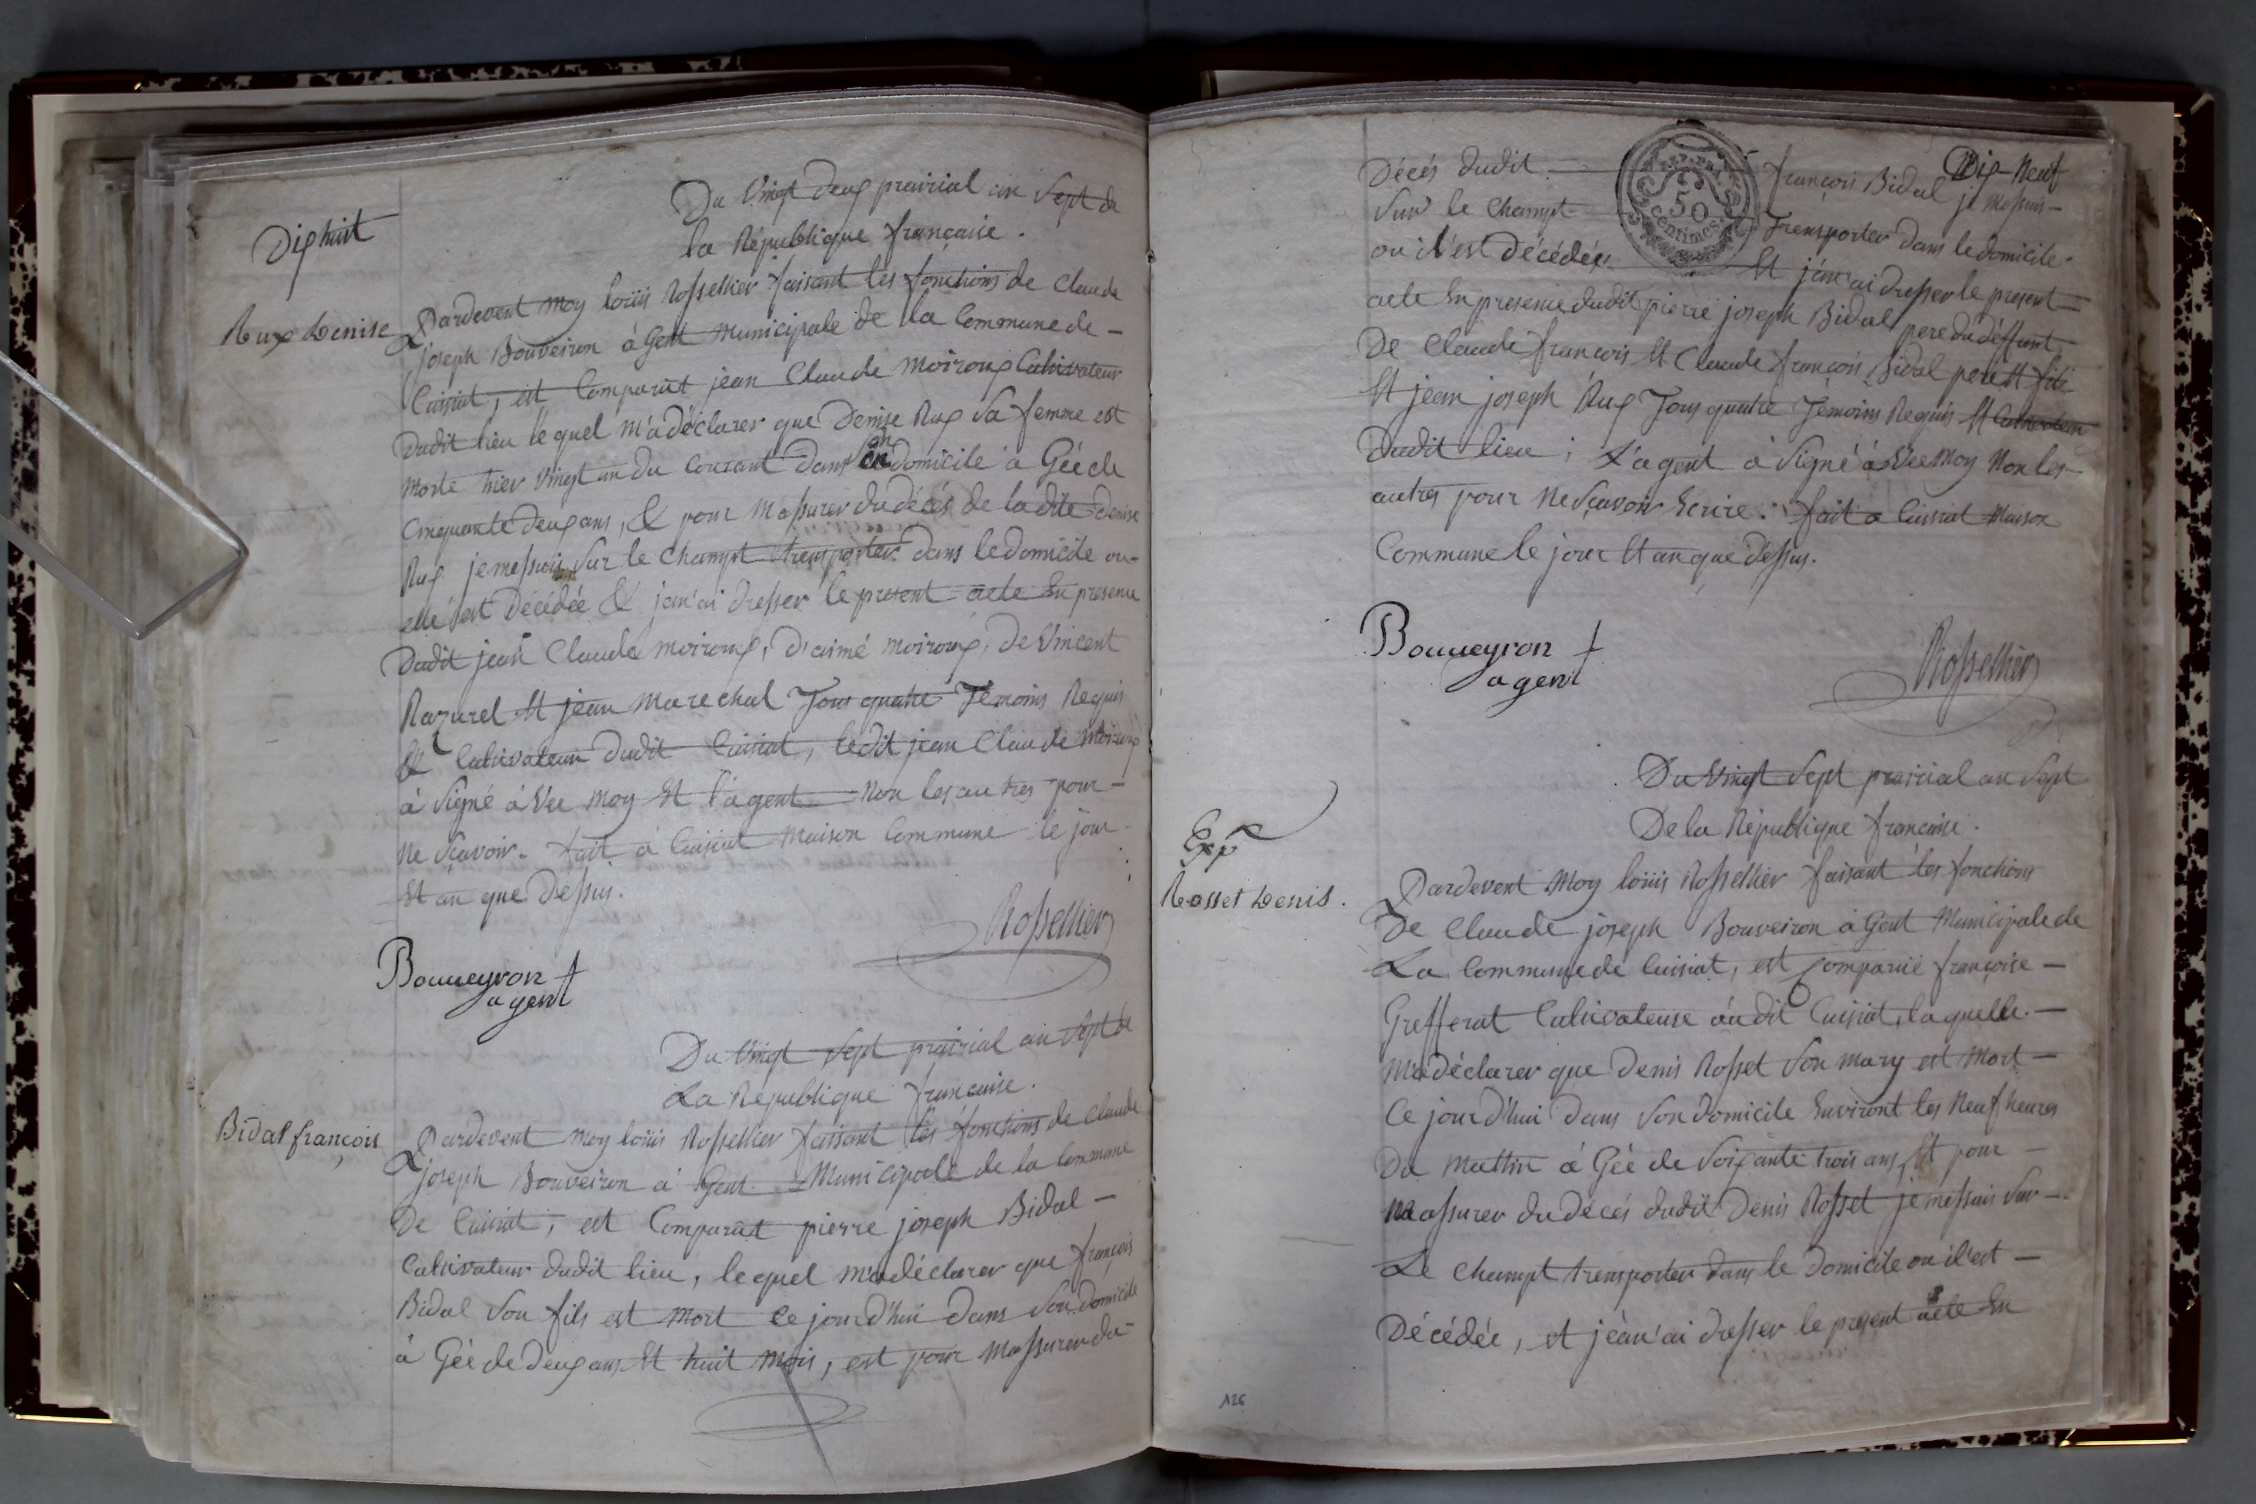 Dix huit
Du Vingt deux prairial an Sept de
la République française.
Rux Denise
Pardevent moy louis Rossellier faisant les fonctions de Claude
joseph Bouveiron à Gent Municipale de la Commune de –
Cuisiat, est Comparüt jean Claude Moiroux Cultivateur
Dudit lieu le quel m'a déclarer que Denise Rux Sa femme est
Morte hier Vingt un du Courant dans Son domicile a Gée de
Cinquante deux ans, & pour Massurer du décés de la dite Denise
Rux je messuis Sur le Champt transporter dans le domicile ou
elle est Décédée & jean'ai dresser le present acte En presence
Dudit jean Claude moiroux, D'aimé moiroux, De Vincent
Razurel Et jean Marechal Tous quatre Temoins Requis
& Cultivateur dudit Cuisiat, ledit jean Claude Moiroux
à Signé à Vec Moy Et l'agent Non les autres pour –
Ne Sçavoir. fait à Cuisiat Maison Commune le jour
Et an que Dessus.
Rossellier
Bouueyron
agent
Du Vingt Sept prairial an Sept de
La République française.
Bidal françois
Pardevent moy louis Rossellier faisant les fonctions de Claude
joseph Bouveiron à Gent Municipale de la Commune
De Cuisiat, est Comparüt pierre joseph Bidal –
Cultivateur dudit lieu, lequel m'a déclarer que françois
Bidal Son fils est Mort Ce jourd'hui dans Son domicile
à Gée de deux ans Et huit Mois, est pour Massurer du
Dix-Neuf
Décés dudit françois Bidal je Messuis –
Sur le Champt Transporter dans le domicile
ou il est Décédée Et jean'ai dresser le present
acte En presence dudit pierre joseph Bidal pere du deffunt
De Claude françois Et Claude françois Bidal pere Et fils
Et jean joseph Rux Tous quatre Temoins Requis Et Cultivateur
Dudit lieu ; L'agent à Signé à Vec Moy Non les
autres pour Ne Sçavoir Ecrire. fait à Cuisiat Maison
Commune le jour Et an que dessus.
50
centimes
Bouueyron
agent
Rossellier
Du Vingt Sept prairial an Sept
De la République française.
Rosset Denis.
Pardevent Moy louis Rossellier faisant les fonctions
De Claude joseph Bouveiron à Gent Municipale de
La Commune de Cuisiat, est Comparüe françoise –
Grefferat Cultivateuse audit Cuisiat, la quelle –
M'a déclarer que Denis Rosset Son mary est Mort –
Ce jourd'hui dans Son domicile Environt les Neuf heures
Du Mattin à Gée de Soixante trois ans, Et pour –
Massurer du décés dudit Denis Rosset je messuis Sur –
Le Champt transporter dans le domicile ou il est –
Décédée, et jean'ai dresser le present acte En
126